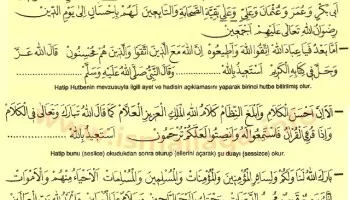 أَبِى بَكْرٍ وَعُمَرَ وَعُثْمَانَ وَعَلِيٍّ وَعَلَى بَقِيَّةِ الصَّحَابَةِ وَالتَّابِعِينَ لَهُمْ بِإِحْسَانٍ اِلَى يَوْمِ الدِّينِ
رِضْوَانُ اللهِ تَعَالَى عَلَيْهِمْ اَجْمَعِينَ
اَمَّا بَعْدُ فَيَا عِبَادَ اللهِ اِتَّقُوا اللهَ وَاَطِيعُوهُ اِنَّ اللهَ مَعَ الَّذِينَ اتَّقَوْا وَالَّذِينَ هُمْ مُحْسِنُونَ قَالَ اللهُ عَزَّ
وَجَلَّ فِى كِتَابِهِ الْكَرِيمِ اَسْتَعِيذُ بِاللهِ ............ وَقَالَ النَّبِىُّ صَلَّى اللهُ عَلَيْهِ وَسَلَّمَ ............
Hatip Hutbenin mevzusuyla ilgili ayet ve hadisin açıklamasını yaparak birinci hutbe bitirilmiş olur.
اَلَا اِنَّ اَحْسَنَ الْكَلَامِ وَاَبْلَغَ النِّظَامِ كَلَامُ اللهِ الْمَلِكِ الْعَزِيزِ الْعَلَّامِ كَمَا قَالَ اللهُ تَبَارَكَ وَتَعَالَى فِى الْكَلَامِ
وَاِذَا قُرِئَ الْقُرْاٰنُ فَاسْتَمِعُوا لَهُ وَاَنْصِتُوا لَعَلَّكُمْ تُرْحَمُونَ اَسْتَعِيذُ بِاللهِ ............
Hatip bunu (seslice) okuduktan sonra oturup (ellerini açarak) şu duayı (sessizce) okur.
بَارَكَ اللهُ لَنَا وَلَكُمْ وَلِسَائِرِ الْمُؤْمِنِينَ وَالْمُؤْمِنَاتِ وَالْمُسْلِمِينَ وَالْمُسْلِمَاتِ اَلْاَحْيَاءِ مِنْهُمْ وَالْاَمْوَاتِ